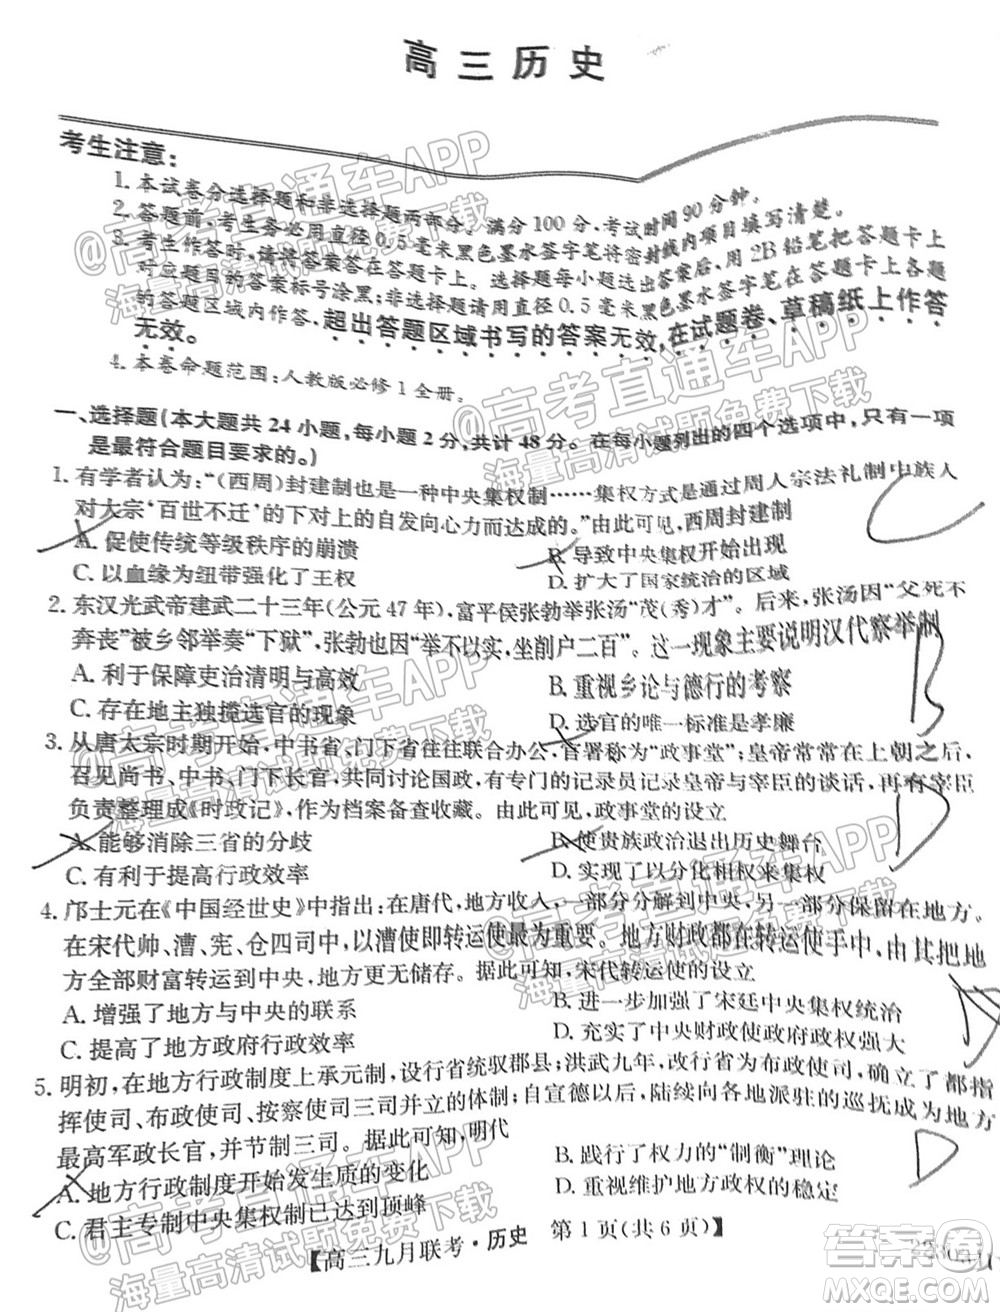 高三历史
考生注意:
1. 本试卷分选择题和非选择题两部分。满分100分,考试时间90分钟。
2. 答题前,考生务必用直径0.5毫米黑色墨水签字笔将密封线内项目填写清楚。
3. 考生作答时,请将答案答在答题卡上。选择题每小题选出答案后,用2B铅笔把答题卡上
对应题目的答案标号涂黑;非选择题请用直径0.5毫米黑色墨水签字笔在答题卡上各题
的答题区域内作答,超出答题区域书写的答案无效,在试题卷、草稿纸上作答
无效。
4. 本卷命题范围:人教版必修1全册。
一、选择题(本大题共24小题,每小题2分,共计48分。在每小题列出的四个选项中,只有一项
是最符合题目要求的。)
1. 有学者认为:“(西周)封建制也是一种中央集权制……集权方式是通过周人宗法礼制中族人
对大宗‘百世不迁’的下对上的自发向心力而达成的。”由此可见,西周封建制
A. 促使传统等级秩序的崩溃 B. 导致中央集权开始出现
C. 以血缘为纽带强化了王权 D. 扩大了国家统治的区域
C
2. 东汉光武帝建武二十三年(公元47年),富平侯张勃举张汤“茂(秀)才”。后来,张汤因“父死不
奔丧”被乡邻举奏“下狱”,张勃也因“举不以实,坐削户二百”。这一现象主要说明汉代察举制
A. 利于保障吏治清明与高效 B. 重视乡论与德行的考察
C. 存在地主独揽选官的现象 D. 选官的唯一标准是孝廉
B
3. 从唐太宗时期开始,中书省、门下省往往联合办公,官署称为“政事堂”;皇帝常常在上朝之后,
召见尚书、中书、门下长官,共同讨论国政,有专门的记录员记录皇帝与宰臣的谈话,再有宰臣
负责整理成《时政记》,作为档案备查收藏。由此可见,政事堂的设立
A. 能够消除三省的分歧 B. 使贵族政治退出历史舞台
C. 有利于提高行政效率 D. 实现了以分化相权加强皇权
D
4. 邝士元在《中国经世史》中指出:在唐代,一部分分解到中央,一部分分解后存在地方。
在宋代帅、漕、宪、仓四司中,以漕使即转运使最为重要。地方财政都在转运使手中,由其把地
方全部财富转运到中央,地方更无储存。据此可知,宋代转运使的设立
A. 增强了地方与中央的联系 B. 进一步加强了宋廷中央集权统治
C. 提高了地方政府行政效率 D. 充实了中央财政使地方政权强大
5. 明初,在地方行政制度上承元制,设行省统驭郡县;洪武九年,改行省为司,确立了都指
挥使司、布政使司、按察使司三司并立的体制;自宣德以后,陆续向各地派驻的巡抚成为地方
最高军政长官,并节制三司。据此可知,明代
A. 地方行政制度开始发生质的变化 B. 践行了权力的“制衡”理论
C. 君主专制中央集权制达到顶峰 D. 重视维护地方政权的稳定
D
【高三九月联考·历史 第1页(共6页)】
答案圈
MXQE.COM
@高考直通车APP
海量高清试题免费下载
@高考直通车APP
海量高清试题免费下载
@高考直通车APP
海量高清试题免费下载
@高考直通车APP
海量高清试题免费下载
@高考直通车APP
海量高清试题免费下载